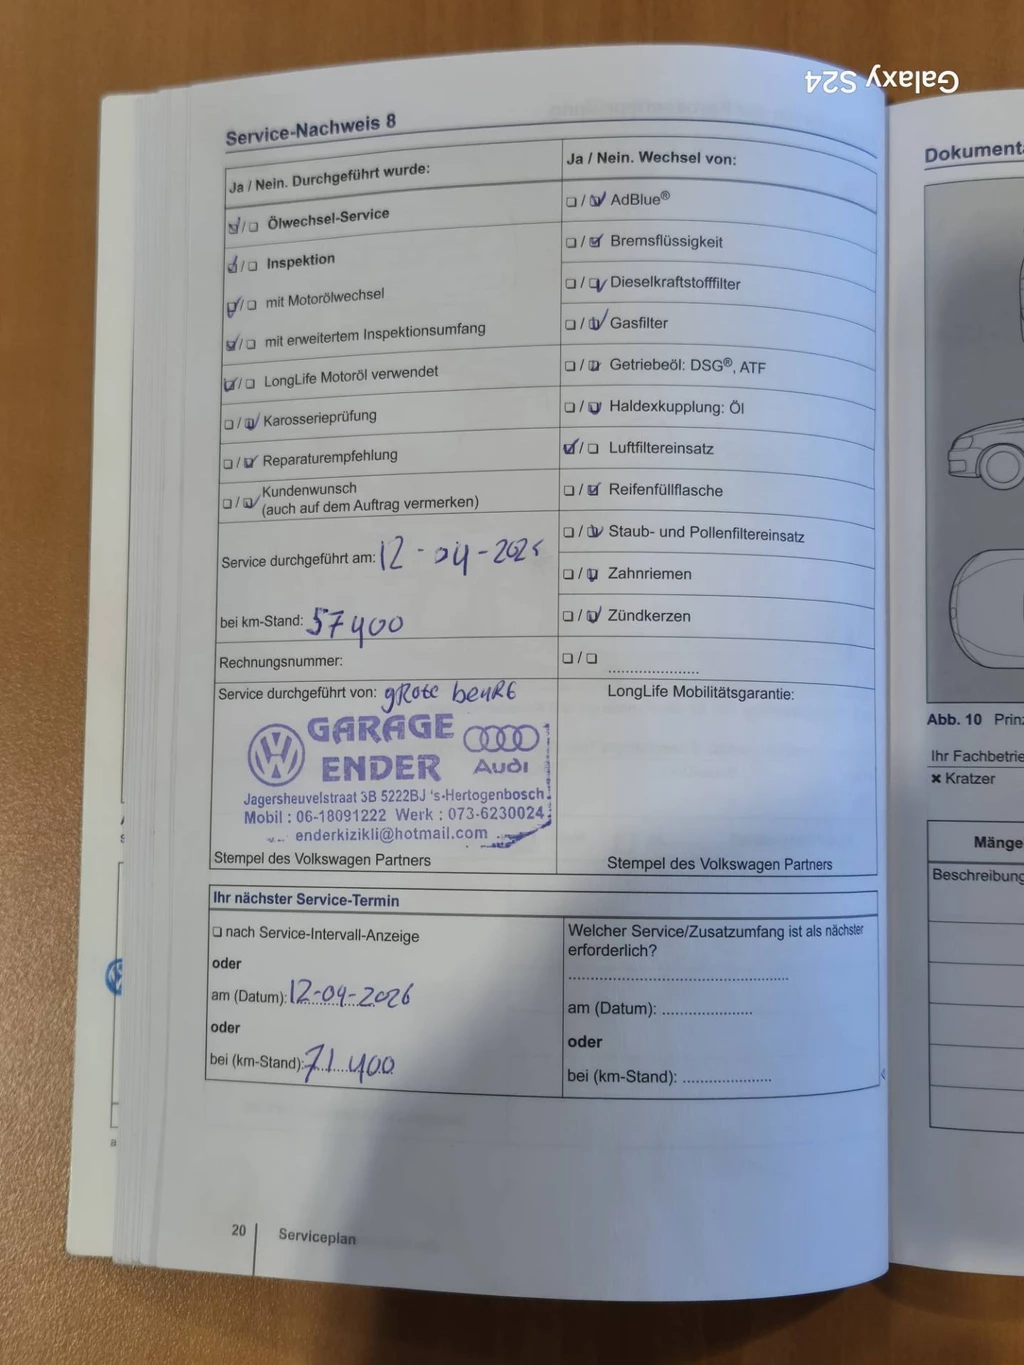 Galaxy S24
Service-Nachweis 8
Ja / Nein. Durchgeführt wurde:
☑/☐ Ölwechsel-Service
☑/☐ Inspektion
☑/☐ mit Motorölwechsel
☑/☐ mit erweitertem Inspektionsumfang
☑/☐ LongLife Motoröl verwendet
☐/☑ Karosserieprüfung
☐/☑ Reparaturempfehlung
☐/☑ Kundenwunsch
(auch auf dem Auftrag vermerken)
Service durchgeführt am: 12-04-2025
bei km-Stand: 57400
Rechnungsnummer:
Service durchgeführt von: gRote beurt
GARAGE
ENDER
Audi
Jagersheuvelstraat 3B 5222BJ 's-Hertogenbosch
Mobil : 06-18091222 Werk : 073-6230024
enderkizikli@hotmail.com
Stempel des Volkswagen Partners
Ja / Nein. Wechsel von:
☐/☑ AdBlue®
☐/☑ Bremsflüssigkeit
☐/☑ Dieselkraftstofffilter
☐/☑ Gasfilter
☐/☑ Getriebeöl: DSG®, ATF
☐/☑ Haldexkupplung: Öl
☑/☐ Luftfiltereinsatz
☐/☑ Reifenfüllflasche
☐/☑ Staub- und Pollenfiltereinsatz
☐/☑ Zahnriemen
☐/☑ Zündkerzen
☐/☐ ....................
LongLife Mobilitätsgarantie:
Stempel des Volkswagen Partners
Ihr nächster Service-Termin
☐ nach Service-Intervall-Anzeige
oder
am (Datum): 12-04-2026
oder
bei (km-Stand): 71.400
Welcher Service/Zusatzumfang ist als nächster
erforderlich?
..................................................
am (Datum): ....................
oder
bei (km-Stand): ....................
20 Serviceplan
Abb. 10
Ihr
× Kratzer